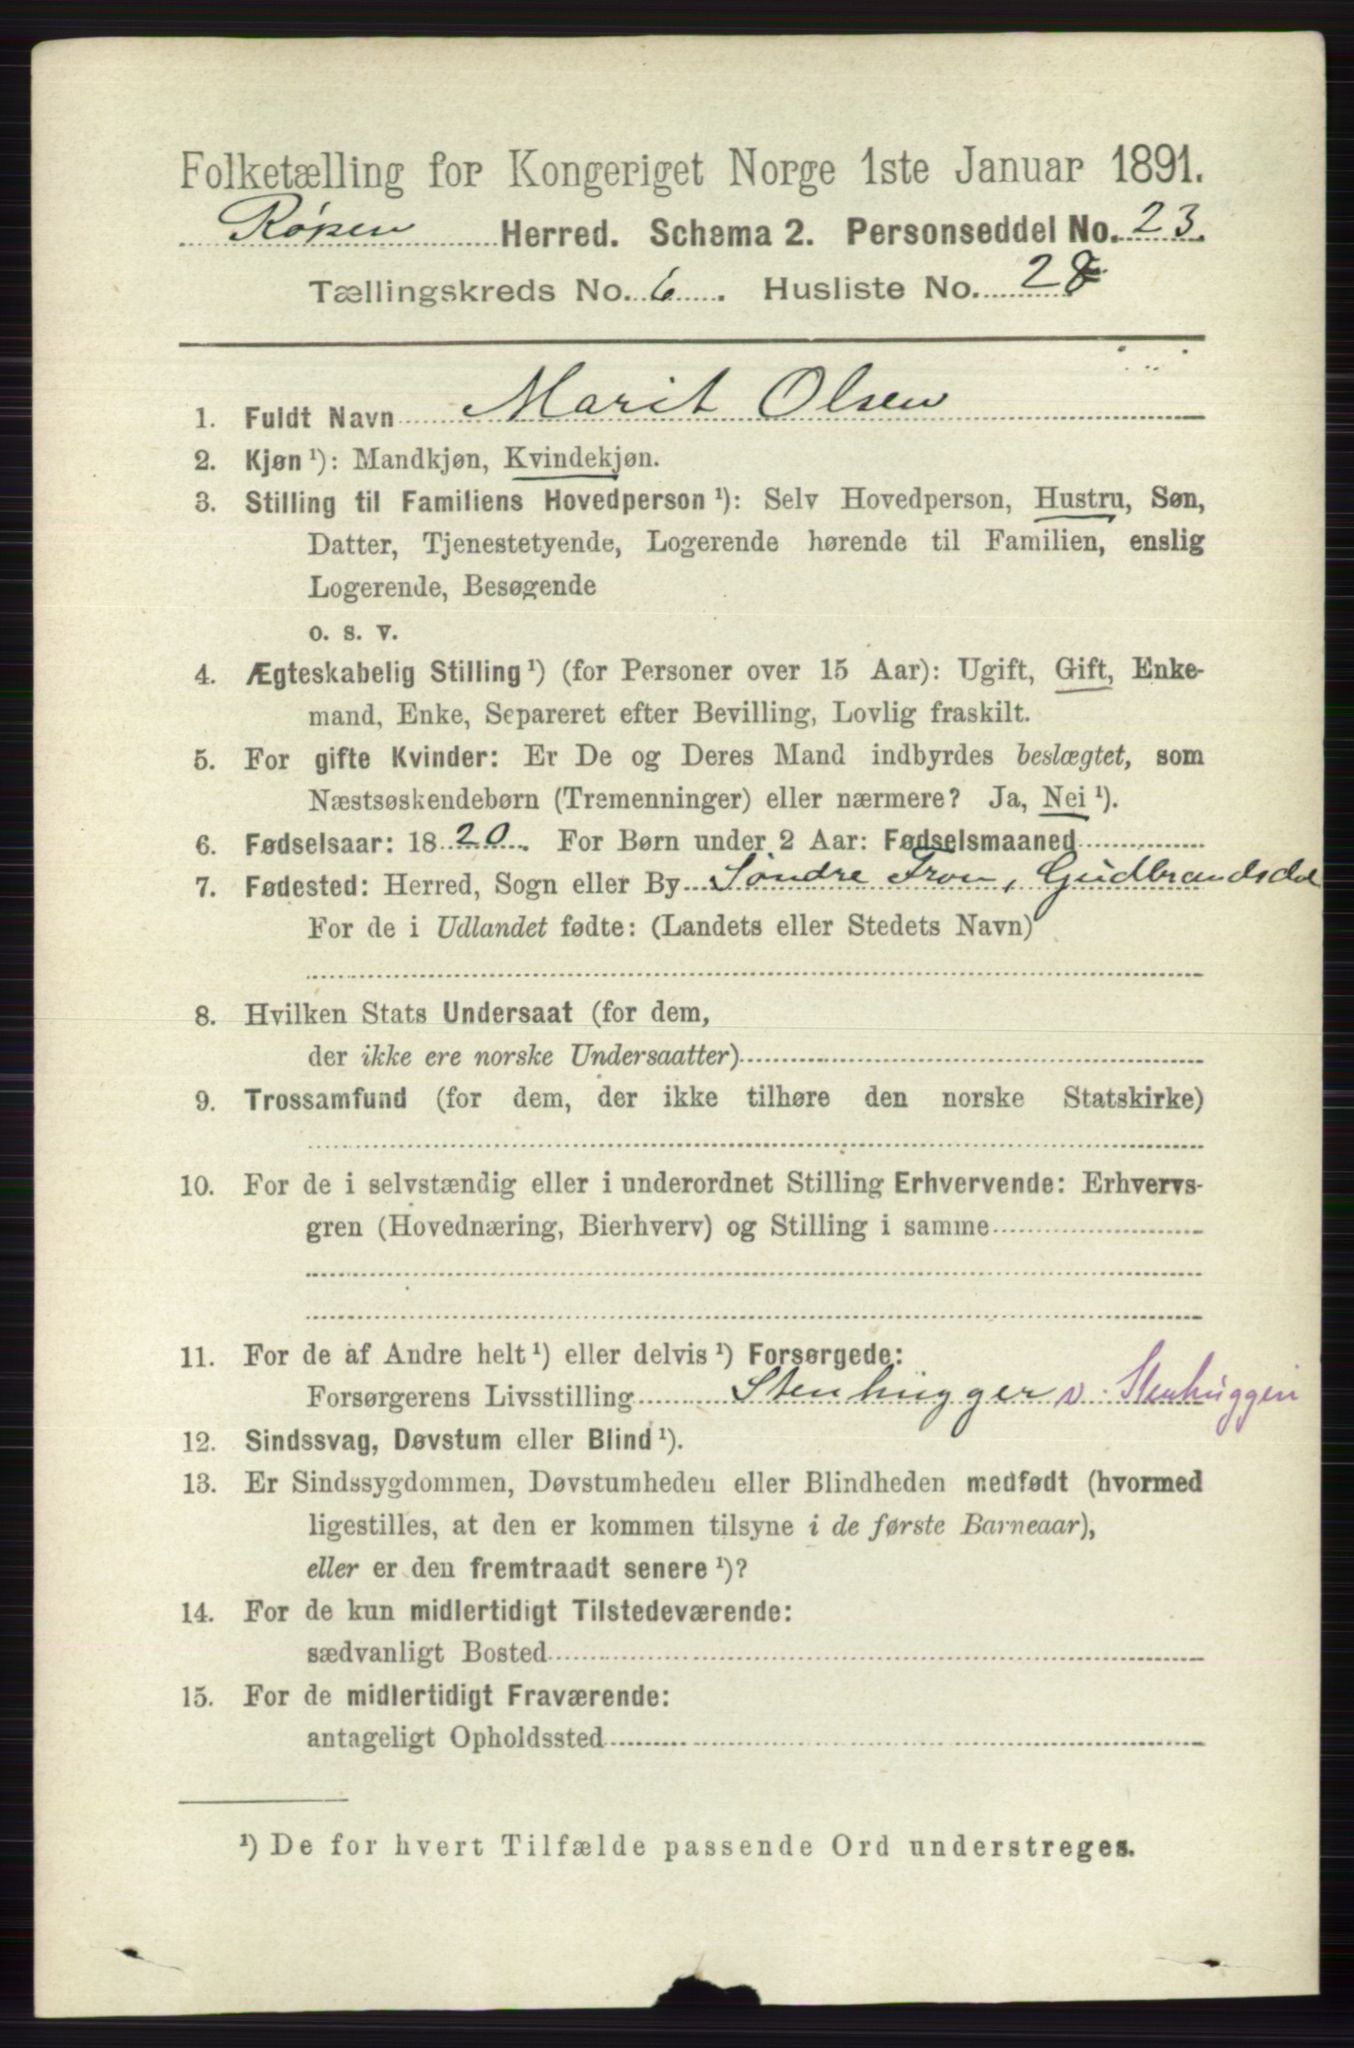 Folketælling for Kongeriget Norge 1ste Januar 1891.
Røken Herred. Schema 2. Personseddel No. 23.
Tællingskreds No. 6. Husliste No. 28
1. Fuldt Navn Marit Olsen
2. Kjøn ¹): Mandkjøn, Kvindekjøn.
3. Stilling til Familiens Hovedperson ¹): Selv Hovedperson, Hustru, Søn,
Datter, Tjenestetyende, Logerende hørende til Familien, enslig
Logerende, Besøgende
o. s. v.
4. Ægteskabelig Stilling ¹) (for Personer over 15 Aar): Ugift, Gift, Enke-
mand, Enke, Separeret efter Bevilling, Lovlig fraskilt.
5. For gifte Kvinder: Er De og Deres Mand indbyrdes beslægtet, som
Næstsøskendebørn (Tremenninger) eller nærmere? Ja, Nei ¹).
6. Fødselsaar: 1820. For Børn under 2 Aar: Fødselsmaaned
7. Fødested: Herred, Sogn eller By Søndre Fron, Gudbrandsdal
For de i Udlandet fødte: (Landets eller Stedets Navn)
8. Hvilken Stats Undersaat (for dem,
der ikke ere norske Undersaatter)
9. Trossamfund (for dem, der ikke tilhøre den norske Statskirke)
10. For de i selvstændig eller i underordnet Stilling Erhvervende: Erhvervs-
gren (Hovednæring, Bierhverv) og Stilling i samme
11. For de af Andre helt ¹) eller delvis ¹) Forsørgede:
Forsørgerens Livsstilling Stenhugger v. Stenhuggeri
12. Sindssvag, Døvstum eller Blind ¹).
13. Er Sindssygdommen, Døvstumheden eller Blindheden medfødt (hvormed
ligestilles, at den er kommen tilsyne i de første Barneaar),
eller er den fremtraadt senere ¹)?
14. For de kun midlertidigt Tilstedeværende:
sædvanligt Bosted
15. For de midlertidigt Fraværende:
antageligt Opholdssted
¹) De for hvert Tilfælde passende Ord understreges.